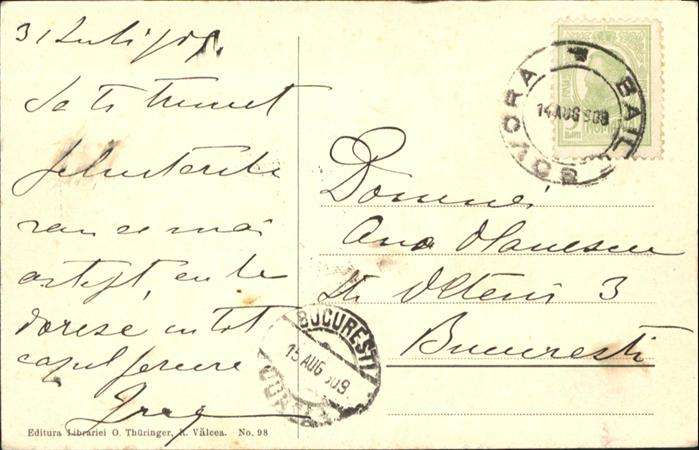 31 Iuli
Să-ți trimet
felicitările
mai
aștept, eu te
doresc în tot
cazul fericire
Domnei
Ana Olanescu
Str. Olteni 3
Bucuresti
BAILE GOVORA
14 AUG 909
BUCURESTI
15 AUG 909
Editura Librariei O. Thüringer, R. Vâlcea. No. 98